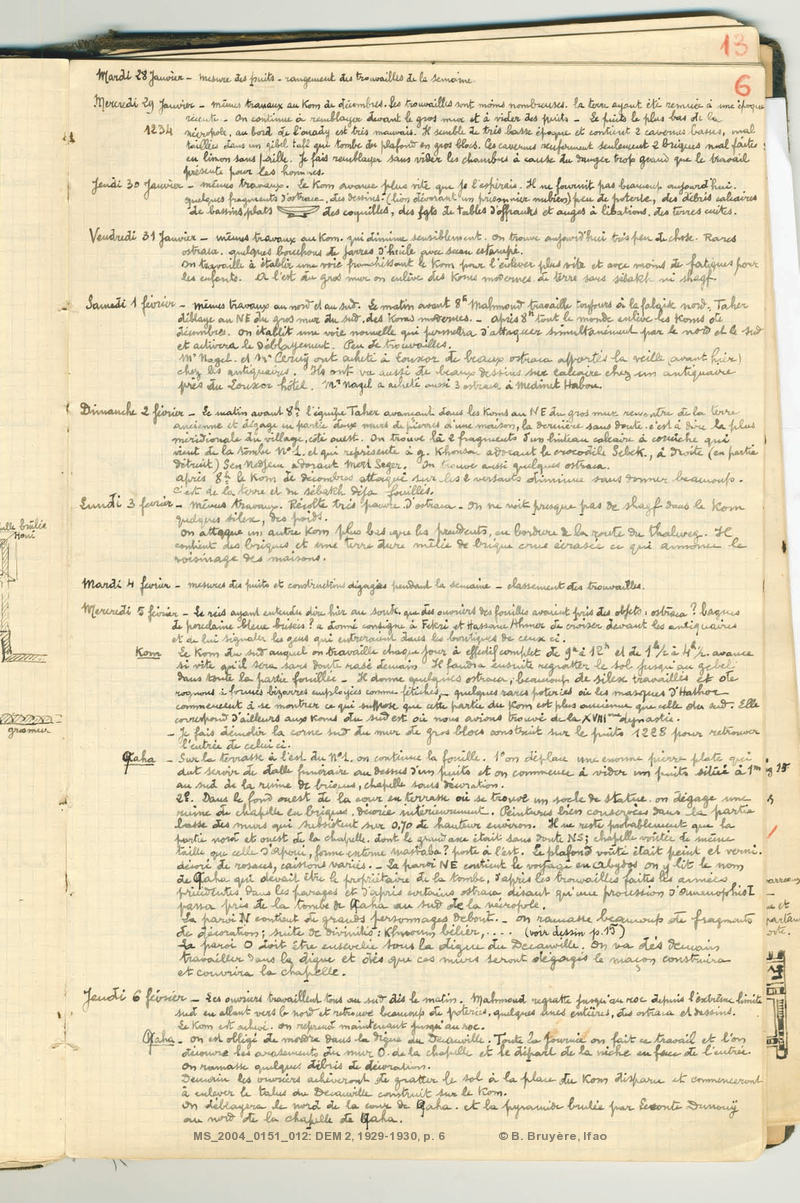 13
6
Mardi 28 Janvier - mesure des puits - rangement des trouvailles de la semaine.
Mercredi 29 Janvier - mêmes travaux au Kom de décombres. Les trouvailles sont moins nombreuses. la terre ayant été remuée à une époque
récente. - On continue à remblayer devant le gros mur et à vider des puits - Le puits le plus bas de la
1234 nécropole, au bord de l'ouady est très mauvais. Il semble de très basse époque et contient 2 cavernes basses, mal
taillées dans un gibel tafl qui tombe du plafond en gros blocs. Ces cavernes renferment seulement 2 briques mal faites
en limon sans paille. Je fais remblayer sans vider les chambres à cause du danger trop grand que le travail
présente pour les hommes.
Jeudi 30 Janvier - mêmes travaux. Le Kom avance plus vite que je l'espérais. Il ne fournit pas beaucoup aujourd'hui.
quelques fragments d'ostraca, des dessins (lion dévorant un prisonnier nubien) peu de poterie, des débris calcaires
de bassins, plats des coquilles, des fgts de tables d'offrandes et auges à libations, des terres cuites.
Vendredi 31 Janvier - mêmes travaux au Kom. qui diminue sensiblement. On trouve aujourd'hui très peu de chose. Rares
ostraca. quelques bouchons de jarres d'huile avec sceau estampé.
On travaille à établir une voie franchissant le Kom pour l'enlever plus vite et avec moins de fatigues pour
les enfants. A l'est du gros mur on enlève des Koms modernes de terre sans sébakh ni shagf
Samedi 1 février - mêmes travaux au nord et au sud. Le matin avant 8h Mahmoud travaille toujours à la falaise nord. Taher
déblaye au NE du gros mur du sud, des Koms modernes. - après 8h tout le monde enlève les Koms de
décombres. On établit une voie nouvelle qui permettra d'attaquer simultanément par le nord et le sud
et activera le déblayement. Peu de trouvailles.
Mr Nagel et Mr Cerny ont acheté à Louxor de beaux ostraca apportés la veille (avant hier)
chez les antiquaires. Ils ont vu aussi de beaux dessins sur calcaire chez un antiquaire
près du Louxor hôtel. Mr Nagel a acheté aussi 3 ostraca à Medinet Habou.
Dimanche 2 février - Le matin avant 8h l'équipe Taher avançant dans les Koms au NE du gros mur rencontre de la terre
ancienne et dégage en partie deux murs de pierres d'une maison, la dernière sans doute, c'est à dire la plus
méridionale du village, côté ouest. On trouve là 2 fragments d'un linteau calcaire à corniche qui
vient de la tombe No 1. et qui représente à g. Khonsou adorant le crocodile Sebek, à Droite (en partie
détruit) Sen Nedjem adorant Mert Seger. On trouve aussi quelques ostraca.
Après 8h le Kom de décombres attaqué sur les 2 versants diminue sans donner beaucoup.
C'est de la terre et du sébakh déjà fouillés.
Lundi 3 février - mêmes travaux. Récolte très pauvre d'ostraca. On ne voit presque pas de shagf dans le Kom
quelques silex, des poids.
On attaque un autre Kom plus bas que les précédents, en bordure de la route du thalweg. Il
contient des briques et une terre dure mêlée de brique crue écrasée ce qui annonce le
voisinage des maisons.
Mardi 4 février - mesures des puits et constructions dégagées pendant la semaine - classement des trouvailles.
Mercredi 5 février - Le réis ayant entendu dire hier au souk, que des ouvriers des fouilles avaient pris des objets: ostraca? bagues
de porcelaine bleue brisées? a donné consigne à Fekri et Hassane Ahmer de croiser devant les antiquaires
et de lui signaler les gens qui entreraient dans les boutiques de ceux ci.
Kom Le Kom du sud auquel on travaille chaque jour à effectif complet de 9h à 12h et de 1h½ à 4h½. avance
si vite qu'il sera sans doute rasé demain. Il faudra ensuite regratter le sol jusqu'au gebel
dans toute la partie fouillée - Il donne quelques ostraca; beaucoup de silex travaillés et de
rognons à formes bizarres employées comme fétiches, - quelques rares poteries où les masques d'Hathor
commencent à se montrer ce qui suppose que cette partie du Kom est plus ancienne que celle du sud. Elle
correspond d'ailleurs aux Koms du sud est où nous avions trouvé de la XVIIIme dynastie.
- Je fais démolir la corne sud du mur de gros blocs construit sur le puits 1228 pour retrouver
l'entrée de celui ci.
Qaha - Sur la terrasse à l'est du No 1. on continue la fouille. 1° on déplace une énorme pierre plate qui
dut servir de dalle funéraire au dessus d'un puits et on commence à vider un puits situé à 1m
au sud de la ruine de briques, chapelle sans décoration.
2°. Dans le fond ouest de la cour en terrasse où se trouve un socle de statue. on dégage une
ruine de chapelle en briques. décorée intérieurement. Peintures bien conservées dans la partie
basse des murs qui subsistent sur 0,70 de hauteur environ. Il ne reste probablement que la
partie nord et ouest de la chapelle. dont le grand axe était sans doute NS; chapelle voûtée de même
taille que celle d'Apoui, forme externe mastaba? porte à l'est. Le plafond voûté était peint et verni.
décoré de rosaces, caissons variés. - La paroi NE contient le voyage en Abydos on y lit le nom
de Qaha qui devait être le propriétaire de la tombe, d'après les trouvailles faites les années
précédentes dans les parages et d'après certains ostraca disant qu'une procession d'Amenophis I
passa près de la tombe de Qaha au sud de la nécropole.
La paroi N contient de grands personnages debout. - On ramasse beaucoup de fragments
de décoration; suite de divinités: Khnoum bélier, .... (voir dessin p. 15)
La paroi O doit être ensevelie sous la digue du Decauville. On va dès demain
travailler dans la digue et dès que ces murs seront dégagés le maçon construira
et couvrira la chapelle.
Jeudi 6 février - Les ouvriers travaillent tous au sud dès le matin. Mahmoud regratte jusqu'au roc depuis l'extrême limite
sud en allant vers le nord et retrouve beaucoup de poteries, quelques unes entières, des ostraca et dessins.
Le Kom est achevé. on reprend maintenant jusqu'au roc.
Qaha - on est obligé de mordre dans la digue du Decauville. Toute la journée on fait ce travail et l'on
découvre les arasements du mur O. de la chapelle et le départ de la niche en face de l'entrée.
On ramasse quelques débris de décoration.
Demain les ouvriers achèveront de gratter le sol à la place du Kom disparu et commenceront
à enlever le talus du Decauville construit sur le Kom.
On déblayera le nord de la cour de Qaha. et la pyramide brulée par Lecomte Dunouÿ
au nord de la chapelle de Qaha.
brûlée
gros mur
MS_2004_0151_012: DEM 2, 1929-1930, p. 6 © B. Bruyère, Ifao